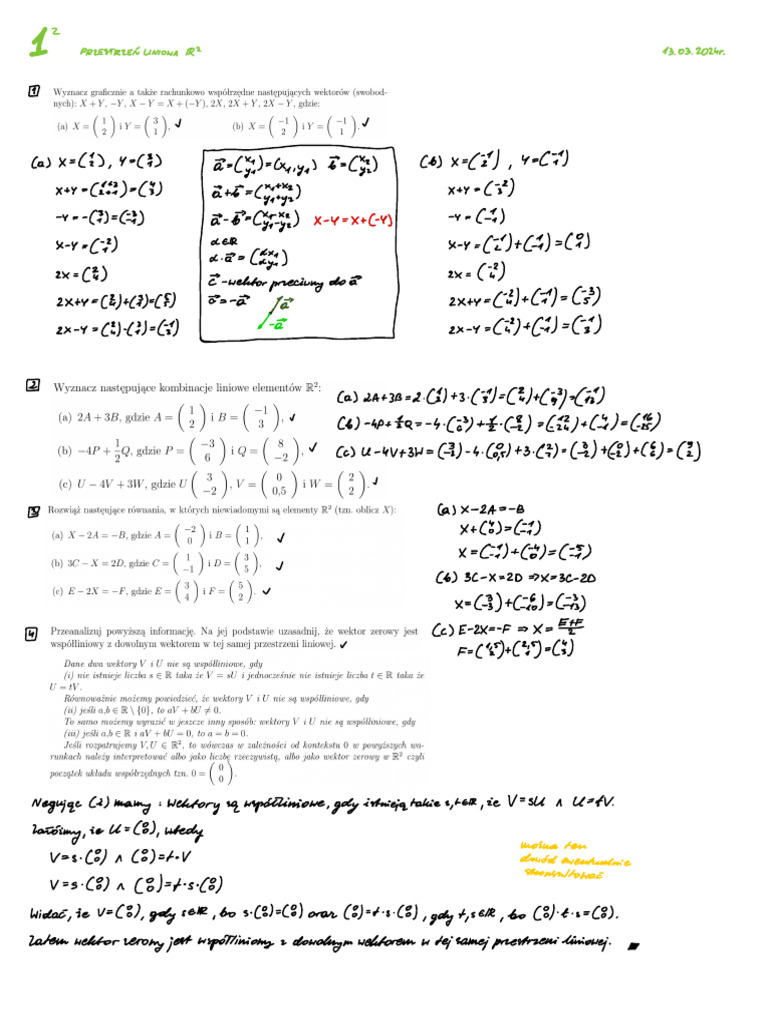 1²
PRZESTRZEŃ LINIOWA ℝ²
13.03.2024r.
1 Wyznacz graficznie a także rachunkowo współrzędne następujących wektorów (swobod-
nych): X + Y, −Y, X − Y = X + (−Y), 2X, 2X + Y, 2X − Y, gdzie:
(a) X = (1 2) i Y = (3 1), ✓ (b) X = (−1 2) i Y = (−1 1). ✓
(a) X=(1 2), Y=(3 1)
X+Y=(1+3 2+1)=(4 3)
-Y=-(3 1)=(-3 -1)
X-Y=(-2 1)
2X=(2 4)
2X+Y=(2 4)+(3 1)=(5 5)
2X-Y=(2 4)-(3 1)=(-1 3)
a⃗=(x₁ y₁)=(x₁,y₁) b⃗=(x₂ y₂)
a⃗+b⃗=(x₁+x₂ y₁+y₂)
a⃗-b⃗=(x₁-x₂ y₁-y₂) X-Y=X+(-Y)
α∈ℝ
α·a⃗=(αx₁ αy₁)
c⃗ -wektor przeciwny do a⃗
c⃗=-a⃗
a⃗
-a⃗
(b) X=(-1 2), Y=(-1 1)
X+Y=(-2 3)
-Y=(1 -1)
X-Y=(-1 2)+(1 -1)=(0 1)
2X=(-2 4)
2X+Y=(-2 4)+(-1 1)=(-3 5)
2X-Y=(-2 4)+(1 -1)=(-1 3)
2 Wyznacz następujące kombinacje liniowe elementów ℝ²:
(a) 2A + 3B, gdzie A = (1 2) i B = (−1 3), ✓
(b) −4P + 1/2 Q, gdzie P = (−3 6) i Q = (8 −2), ✓
(c) U − 4V + 3W, gdzie U (3 −2), V = (0 0,5) i W = (2 2). ✓
(a) 2A+3B=2·(1 2)+3·(-1 3)=(2 4)+(-3 9)=(-1 13)
(b) -4P+1/2Q=-4·(-3 6)+1/2·(8 -2)=(12 24)+(4 -1)=(16 -25)
(c) U-4V+3W=(3 -2)-4·(0 0,5)+3·(2 2)=(3 -2)+(0 -2)+(6 6)=(9 2)
3 Rozwiąż następujące równania, w których niewiadomymi są elementy ℝ² (tzn. oblicz X):
(a) X − 2A = −B, gdzie A = (−2 0) i B = (1 1), ✓
(b) 3C − X = 2D, gdzie C = (1 −1) i D = (3 5), ✓
(c) E − 2X = −F, gdzie E = (3 4) i F = (5 2). ✓
(a) X-2A=-B
X+(4 0)=(-1 -1)
X=(-1 -1)+(-4 0)=(-5 -1)
(b) 3C-X=2D ⇒ X=3C-2D
X=(3 -3)+(-6 -10)=(-3 -13)
(c) E-2X=-F ⇒ X=E+F/2
F=(1,5 2)+(2,5 1)=(4 3)
4 Przeanalizuj powyższą informację. Na jej podstawie uzasadnij, że wektor zerowy jest
współliniowy z dowolnym wektorem w tej samej przestrzeni liniowej. ✓
Dane dwa wektory V i U nie są współliniowe, gdy
(i) nie istnieje liczba s ∈ ℝ taka że V = sU i jednocześnie nie istnieje liczba t ∈ ℝ taka że
U = tV.
Równoważnie możemy powiedzieć, że wektory V i U nie są współliniowe, gdy
(ii) jeśli a,b ∈ ℝ \ {0}, to aV + bU ≠ 0.
To samo możemy wyrazić w jeszcze inny sposób: wektory V i U nie są współliniowe, gdy
(iii) jeśli a,b ∈ ℝ i aV + bU = 0, to a = b = 0.
Jeśli rozpatrujemy V, U ∈ ℝ², to wówczas w zależności od kontekstu 0 w powyższych wa-
runkach należy interpretować albo jako liczbę rzeczywistą, albo jako wektor zerowy w ℝ² czyli
początek układu współrzędnych tzn. 0 = (0 0).
Negując (i) mamy: wektory są współliniowe, gdy istnieją takie s,t∈ℝ, że V=sU ∧ U=tV.
Załóżmy, że U=(0 0), wtedy
V=s·(0 0) ∧ (0 0)=t·V
V=s·(0 0) ∧ (0 0)=t·s·(0 0)
można ten
dowód ewentualnie
skonsultować
Widać, że V=(0 0), gdy s∈ℝ, bo s·(0 0)=(0 0) oraz (0 0)=t·s·(0 0), gdy t,s∈ℝ, bo (0 0)·t·s=(0 0).
Zatem wektor zerowy jest współliniowy z dowolnym wektorem w tej samej przestrzeni liniowej. ■